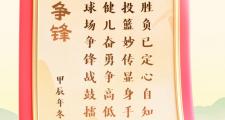 争锋
甲辰年冬
球场争锋战鼓擂
健儿奋勇争高低
投篮妙传显身手
胜负已定心自知